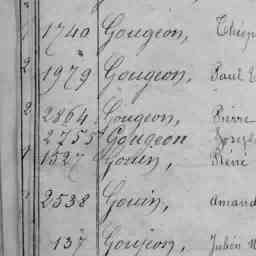 1740 Gougeon,
2 1979 Gougeon, Paul
2 2864 Gougeon, Pierre
2755 Gougeon Joseph
1 1527 Gouin, René
2538 Gouin, Amand
137 Goujeon, Julien